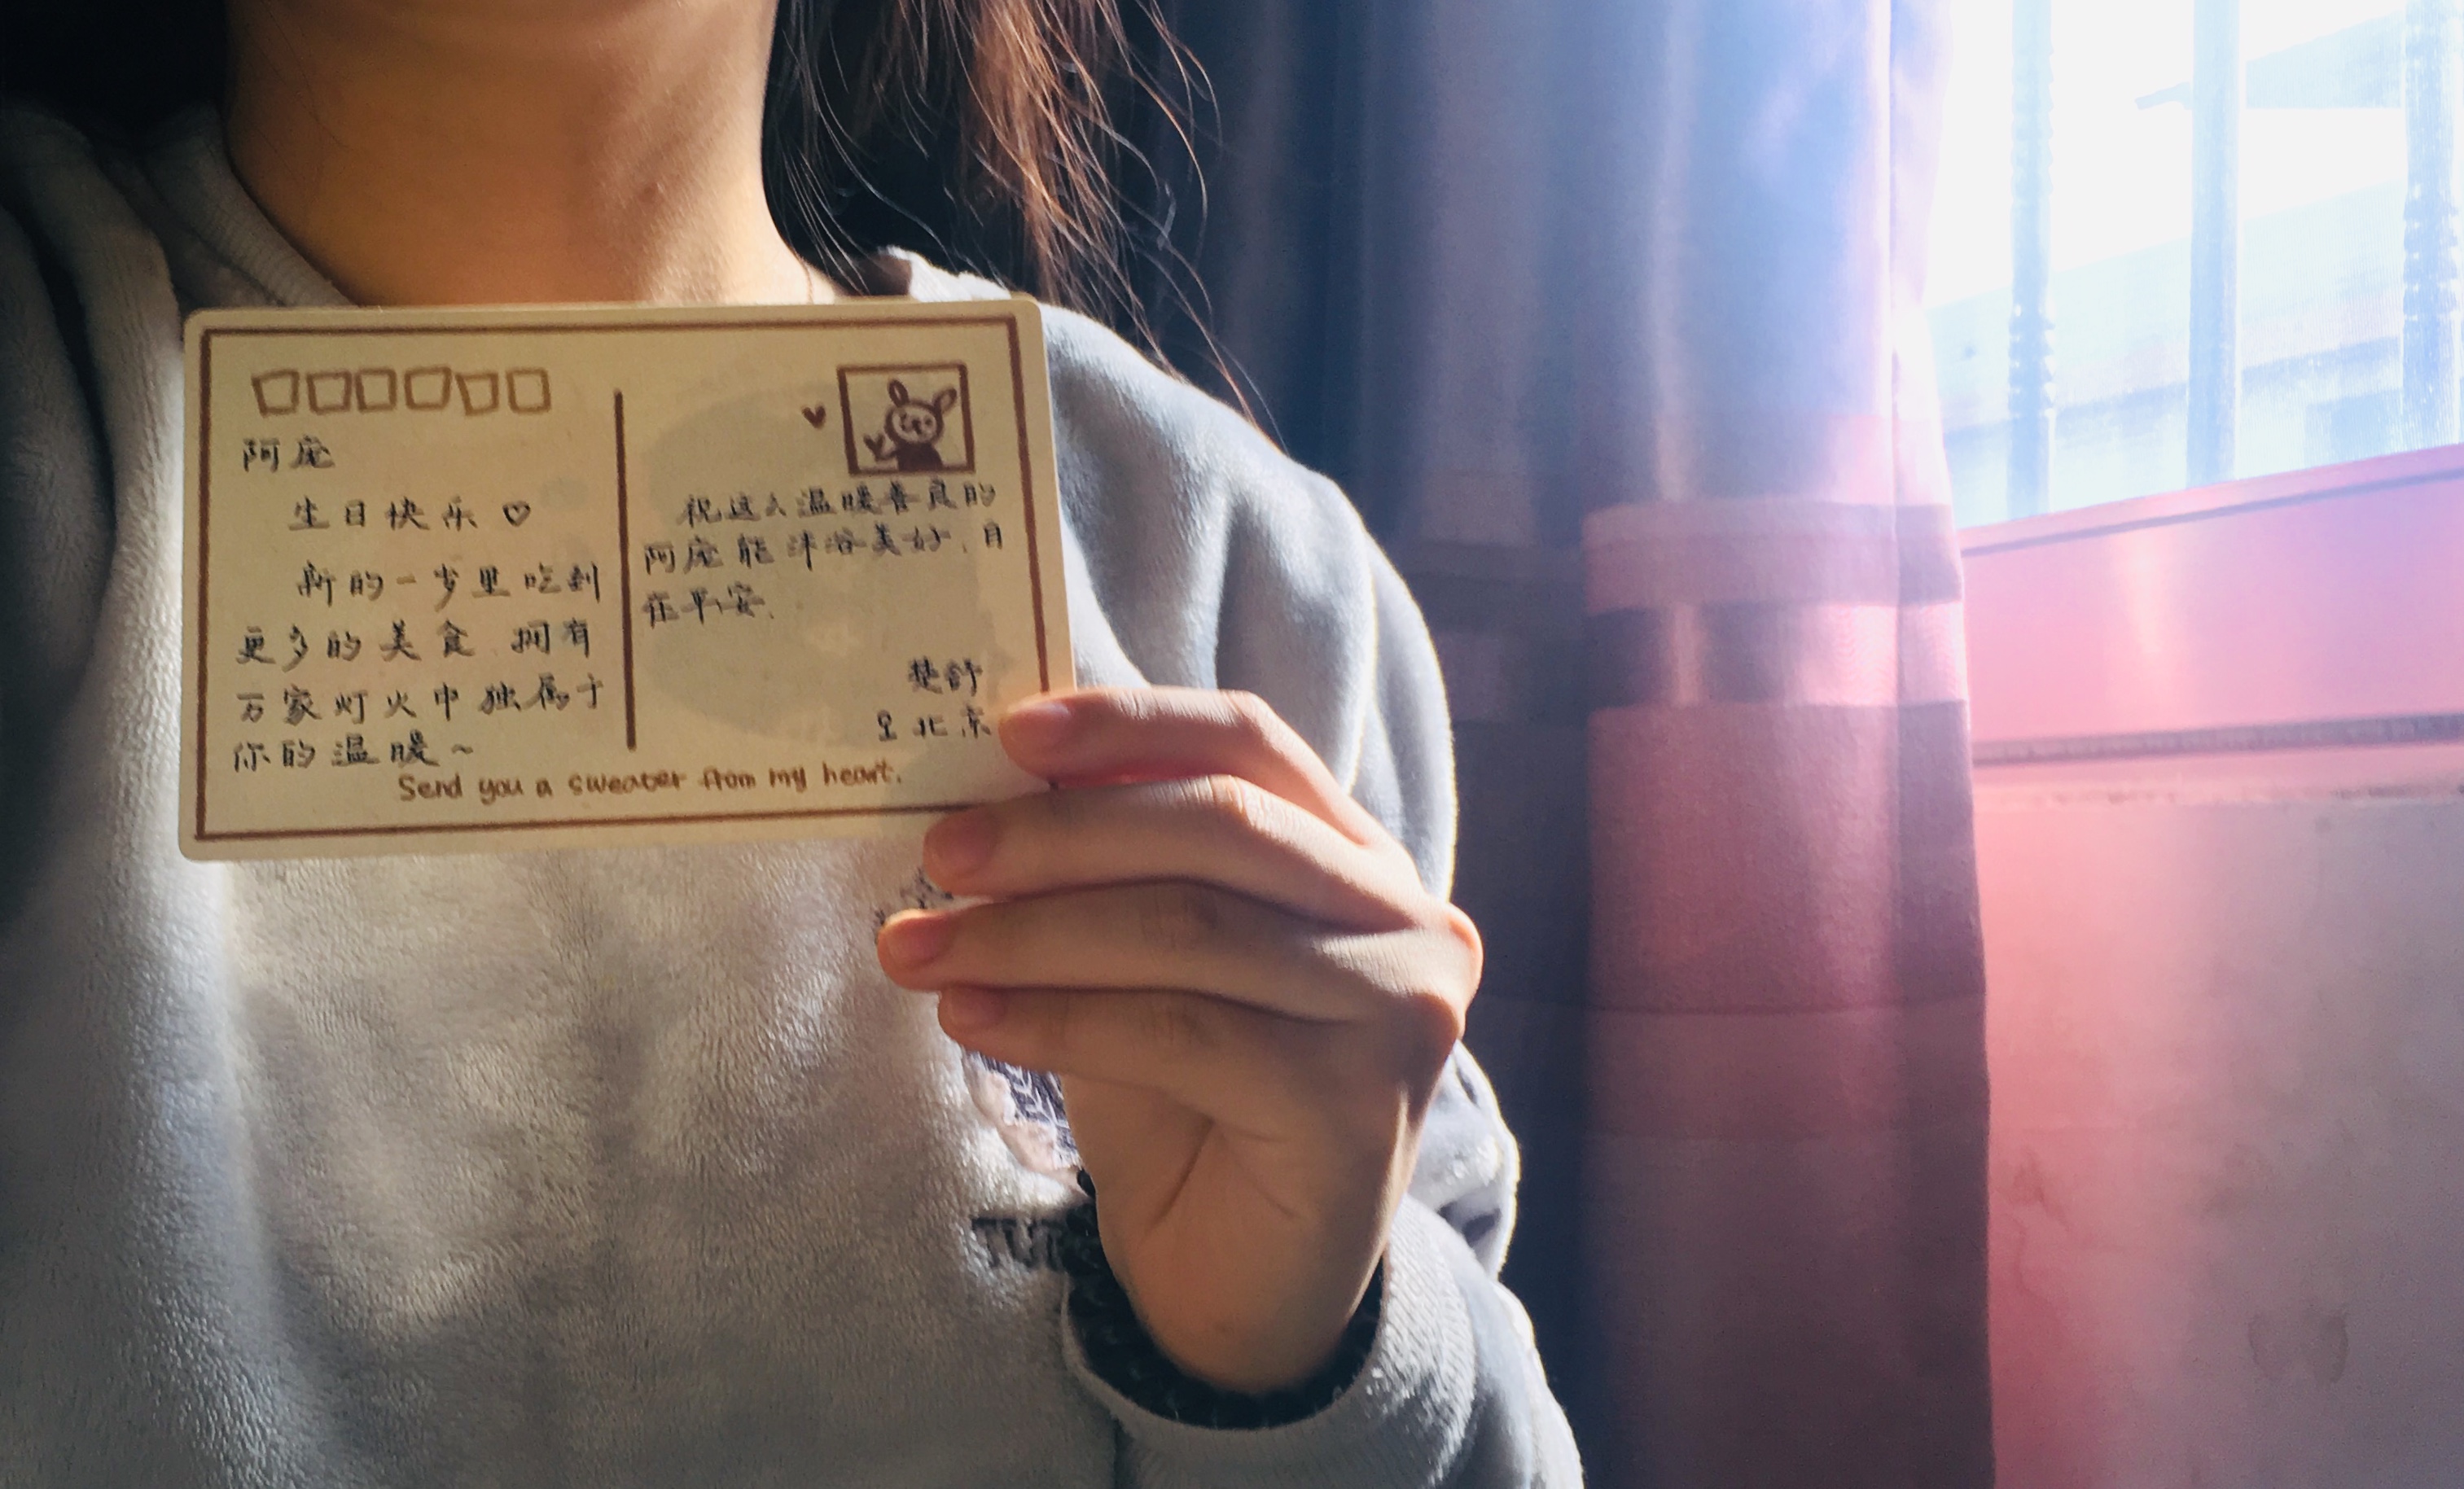 阿庞
生日快乐♡
新的一岁里吃到
更多的美食.拥有
万家灯火中独属于
你的温暖~
祝这么温暖善良的
阿庞能沐浴美好.自
在平安.
楚舒
至北京
Send you a sweater from my heart.